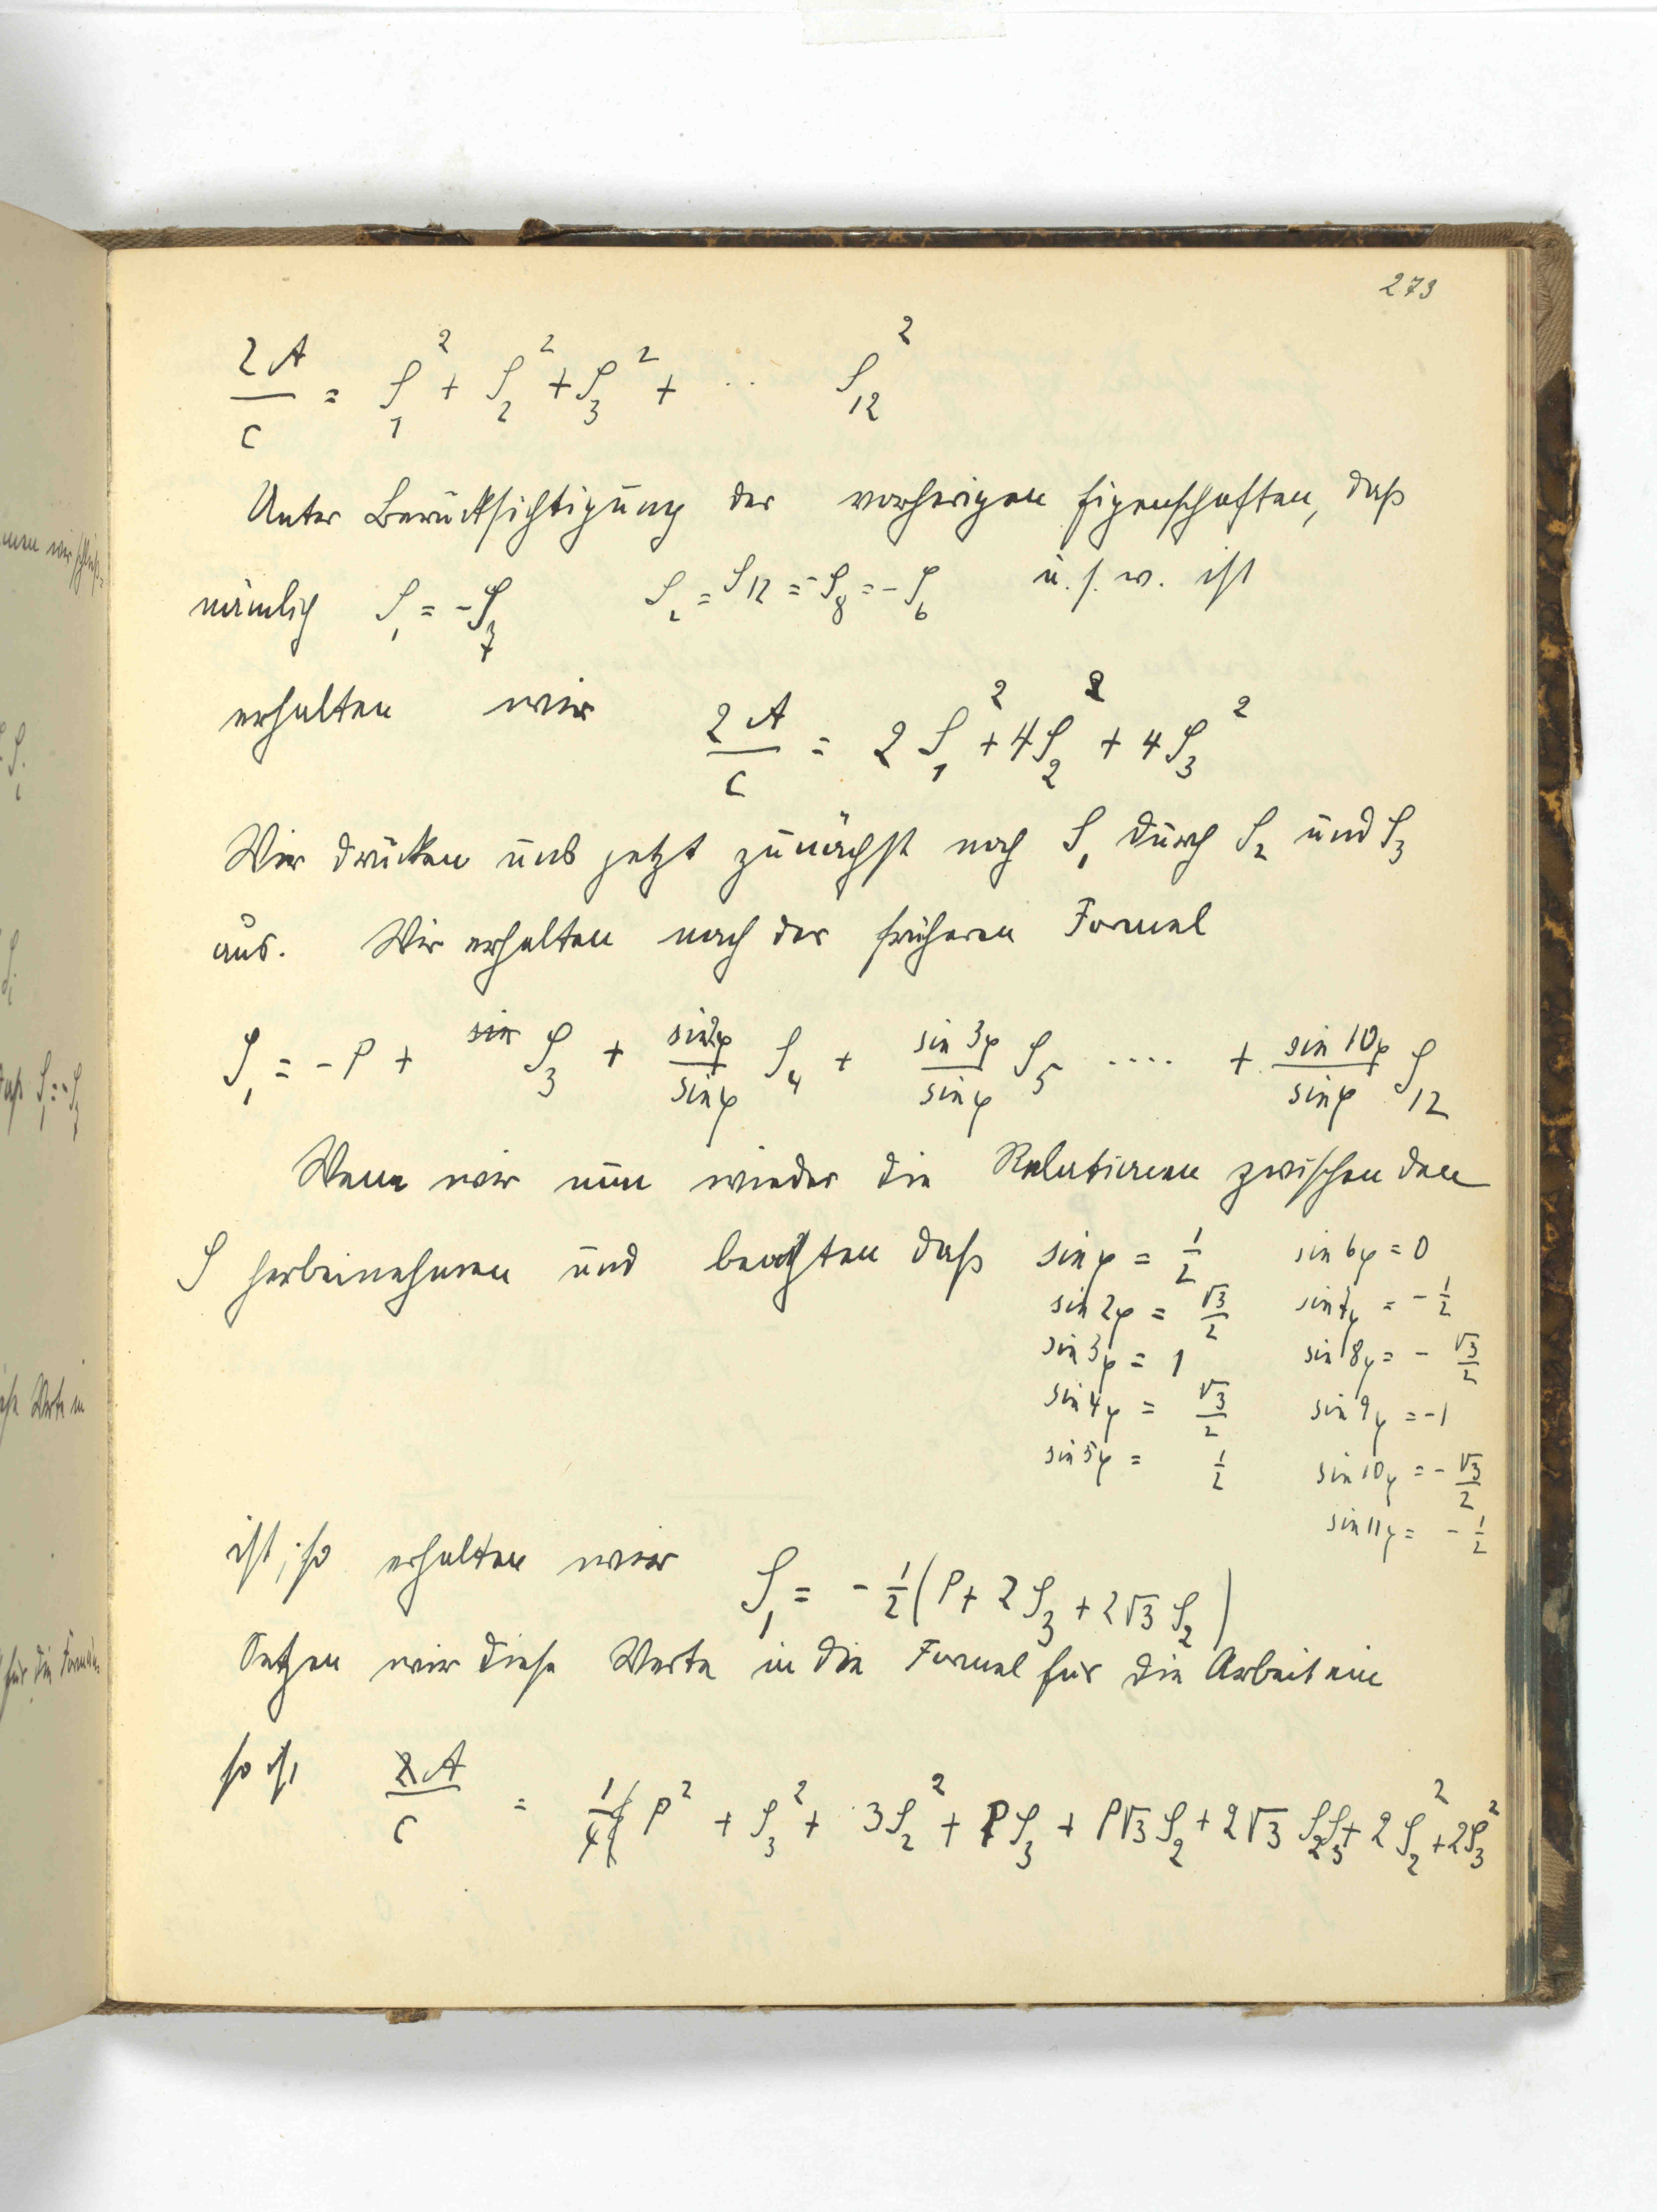 273
2A/c = S₁² + S₂² + S₃² + .. S₁₂²
Unter Berücksichtigung der vorherigen Eigenschaften, daß
nämlich S₁ = -S₇ S₂ = S₁₂ = -S₈ = -S₆ u.s.w. ist
erhalten wir 2A/c = 2S₁² + 4S₂² + 4S₃²
Wir drücken uns jetzt zunächst noch S₁ durch S₂ und S₃
aus. Wir erhalten nach der früheren Formel
S₁ = -P + sin S₃ + sin2φ/sinφ S₄ + sin3φ/sinφ S₅ .... + sin10φ/sinφ S₁₂
Wenn wir nun wieder die Relationen zwischen den
S herbeinehmen und beachten daß sinφ = 1/2 sin6φ = 0
sin2φ = √3/2 sin7φ = -1/2
sin3φ = 1 sin8φ = -√3/2
sin4φ = √3/2 sin9φ = -1
sin5φ = 1/2 sin10φ = -√3/2
sin11φ = -1/2
ist, so erhalten wir S₁ = -1/2(P + 2S₃ + 2√3 S₂)
Setzen wir diese Werte in die Formel für die Arbeit ein
so ist A/c = 1/4 P² + S₃² + 3S₂² + PS₃ + P√3 S₂ + 2√3 S₂S₃ + 2S₂² + 2S₃²